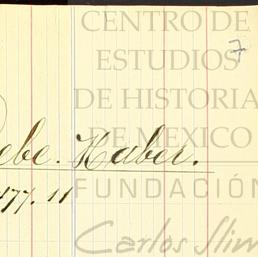 CENTRO DE
ESTUDIOS
7
DE HISTORIA
DE MEXICO
Debe. Haber.
477.11
FUNDACIÓN
Carlos Slim